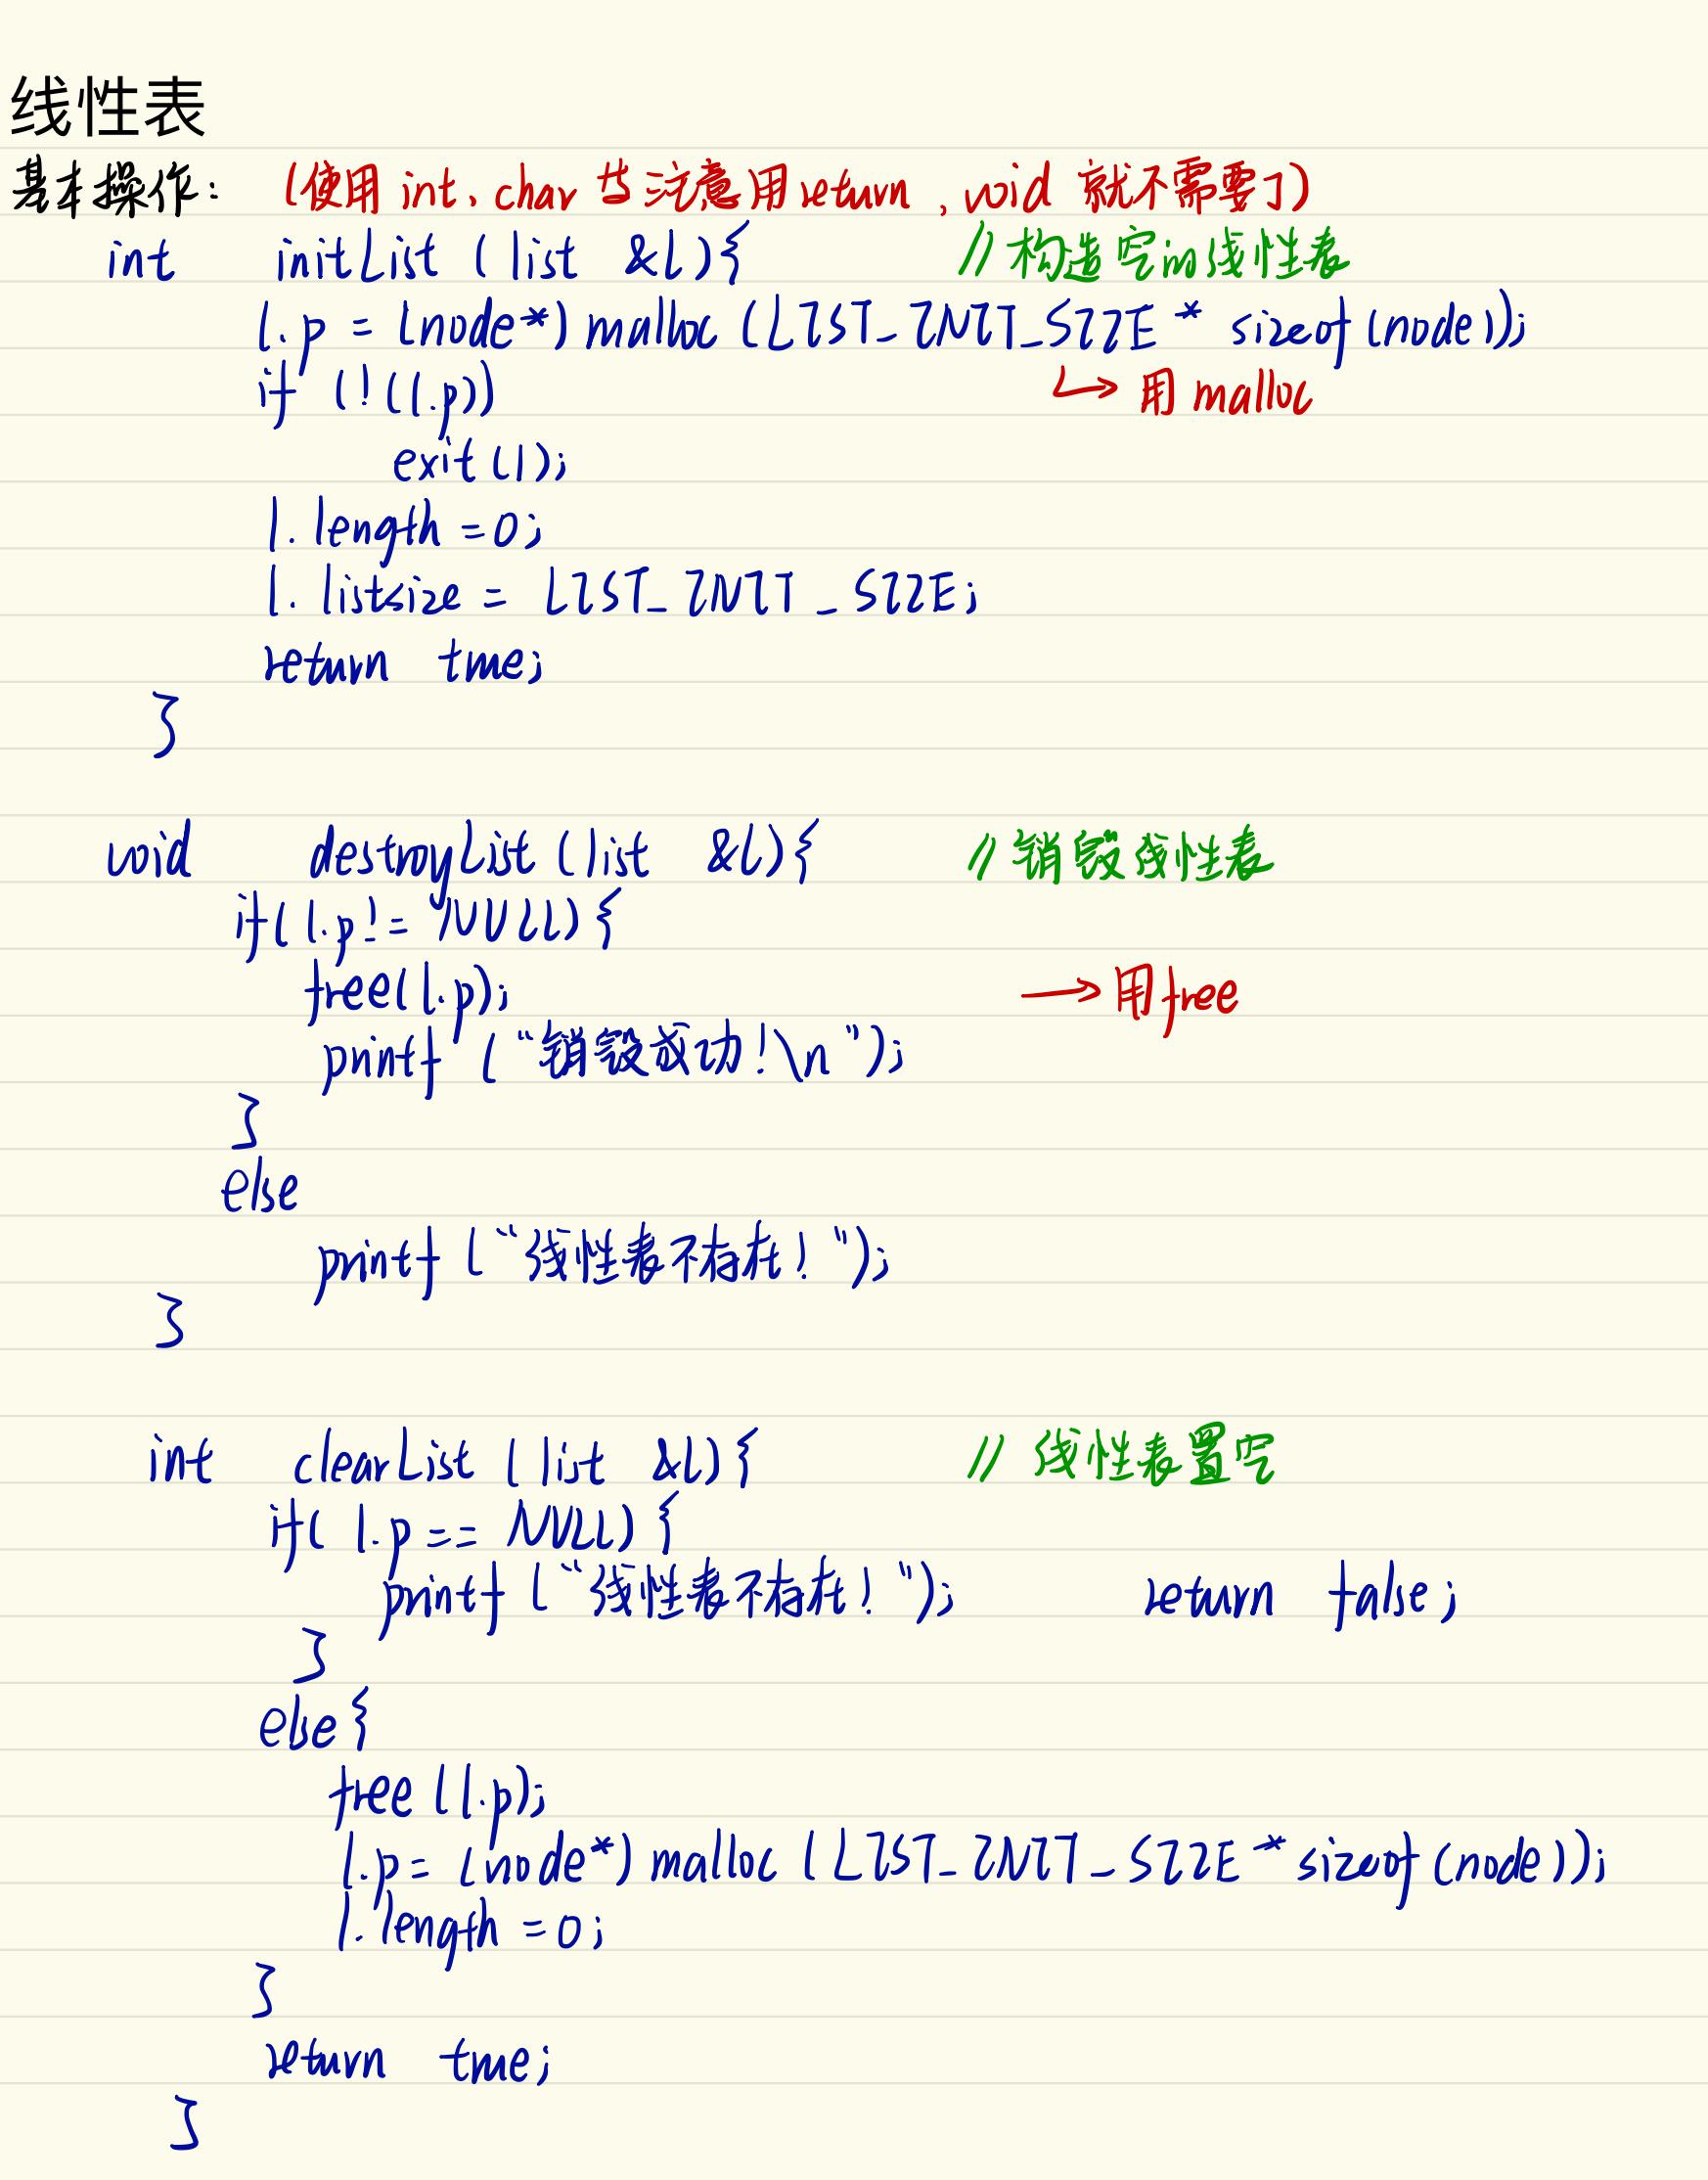 线性表
基本操作: (使用 int、char 时注意用 return , void 就不需要了)
int initList (list &l){ //构造空的线性表
l.p = (node*) malloc (LIST_INIT_SIZE * sizeof(node));
if (!(l.p)) ↳ 用 malloc
exit(1);
l.length =0;
l.listsize = LIST_INIT_SIZE;
return true;
}
void destroyList (list &l){ //销毁线性表
if(l.p!= NULL){
free(l.p); → 用free
printf ("销毁成功!\n");
}
else
printf ("线性表不存在!");
}
int clearList (list &l){ // 线性表置空
if( l.p== NULL) {
printf ("线性表不存在!"); return false;
}
else{
free (l.p);
l.p= (node*) malloc (LIST_INIT_SIZE *sizeof(node));
l.length =0;
}
return true;
}